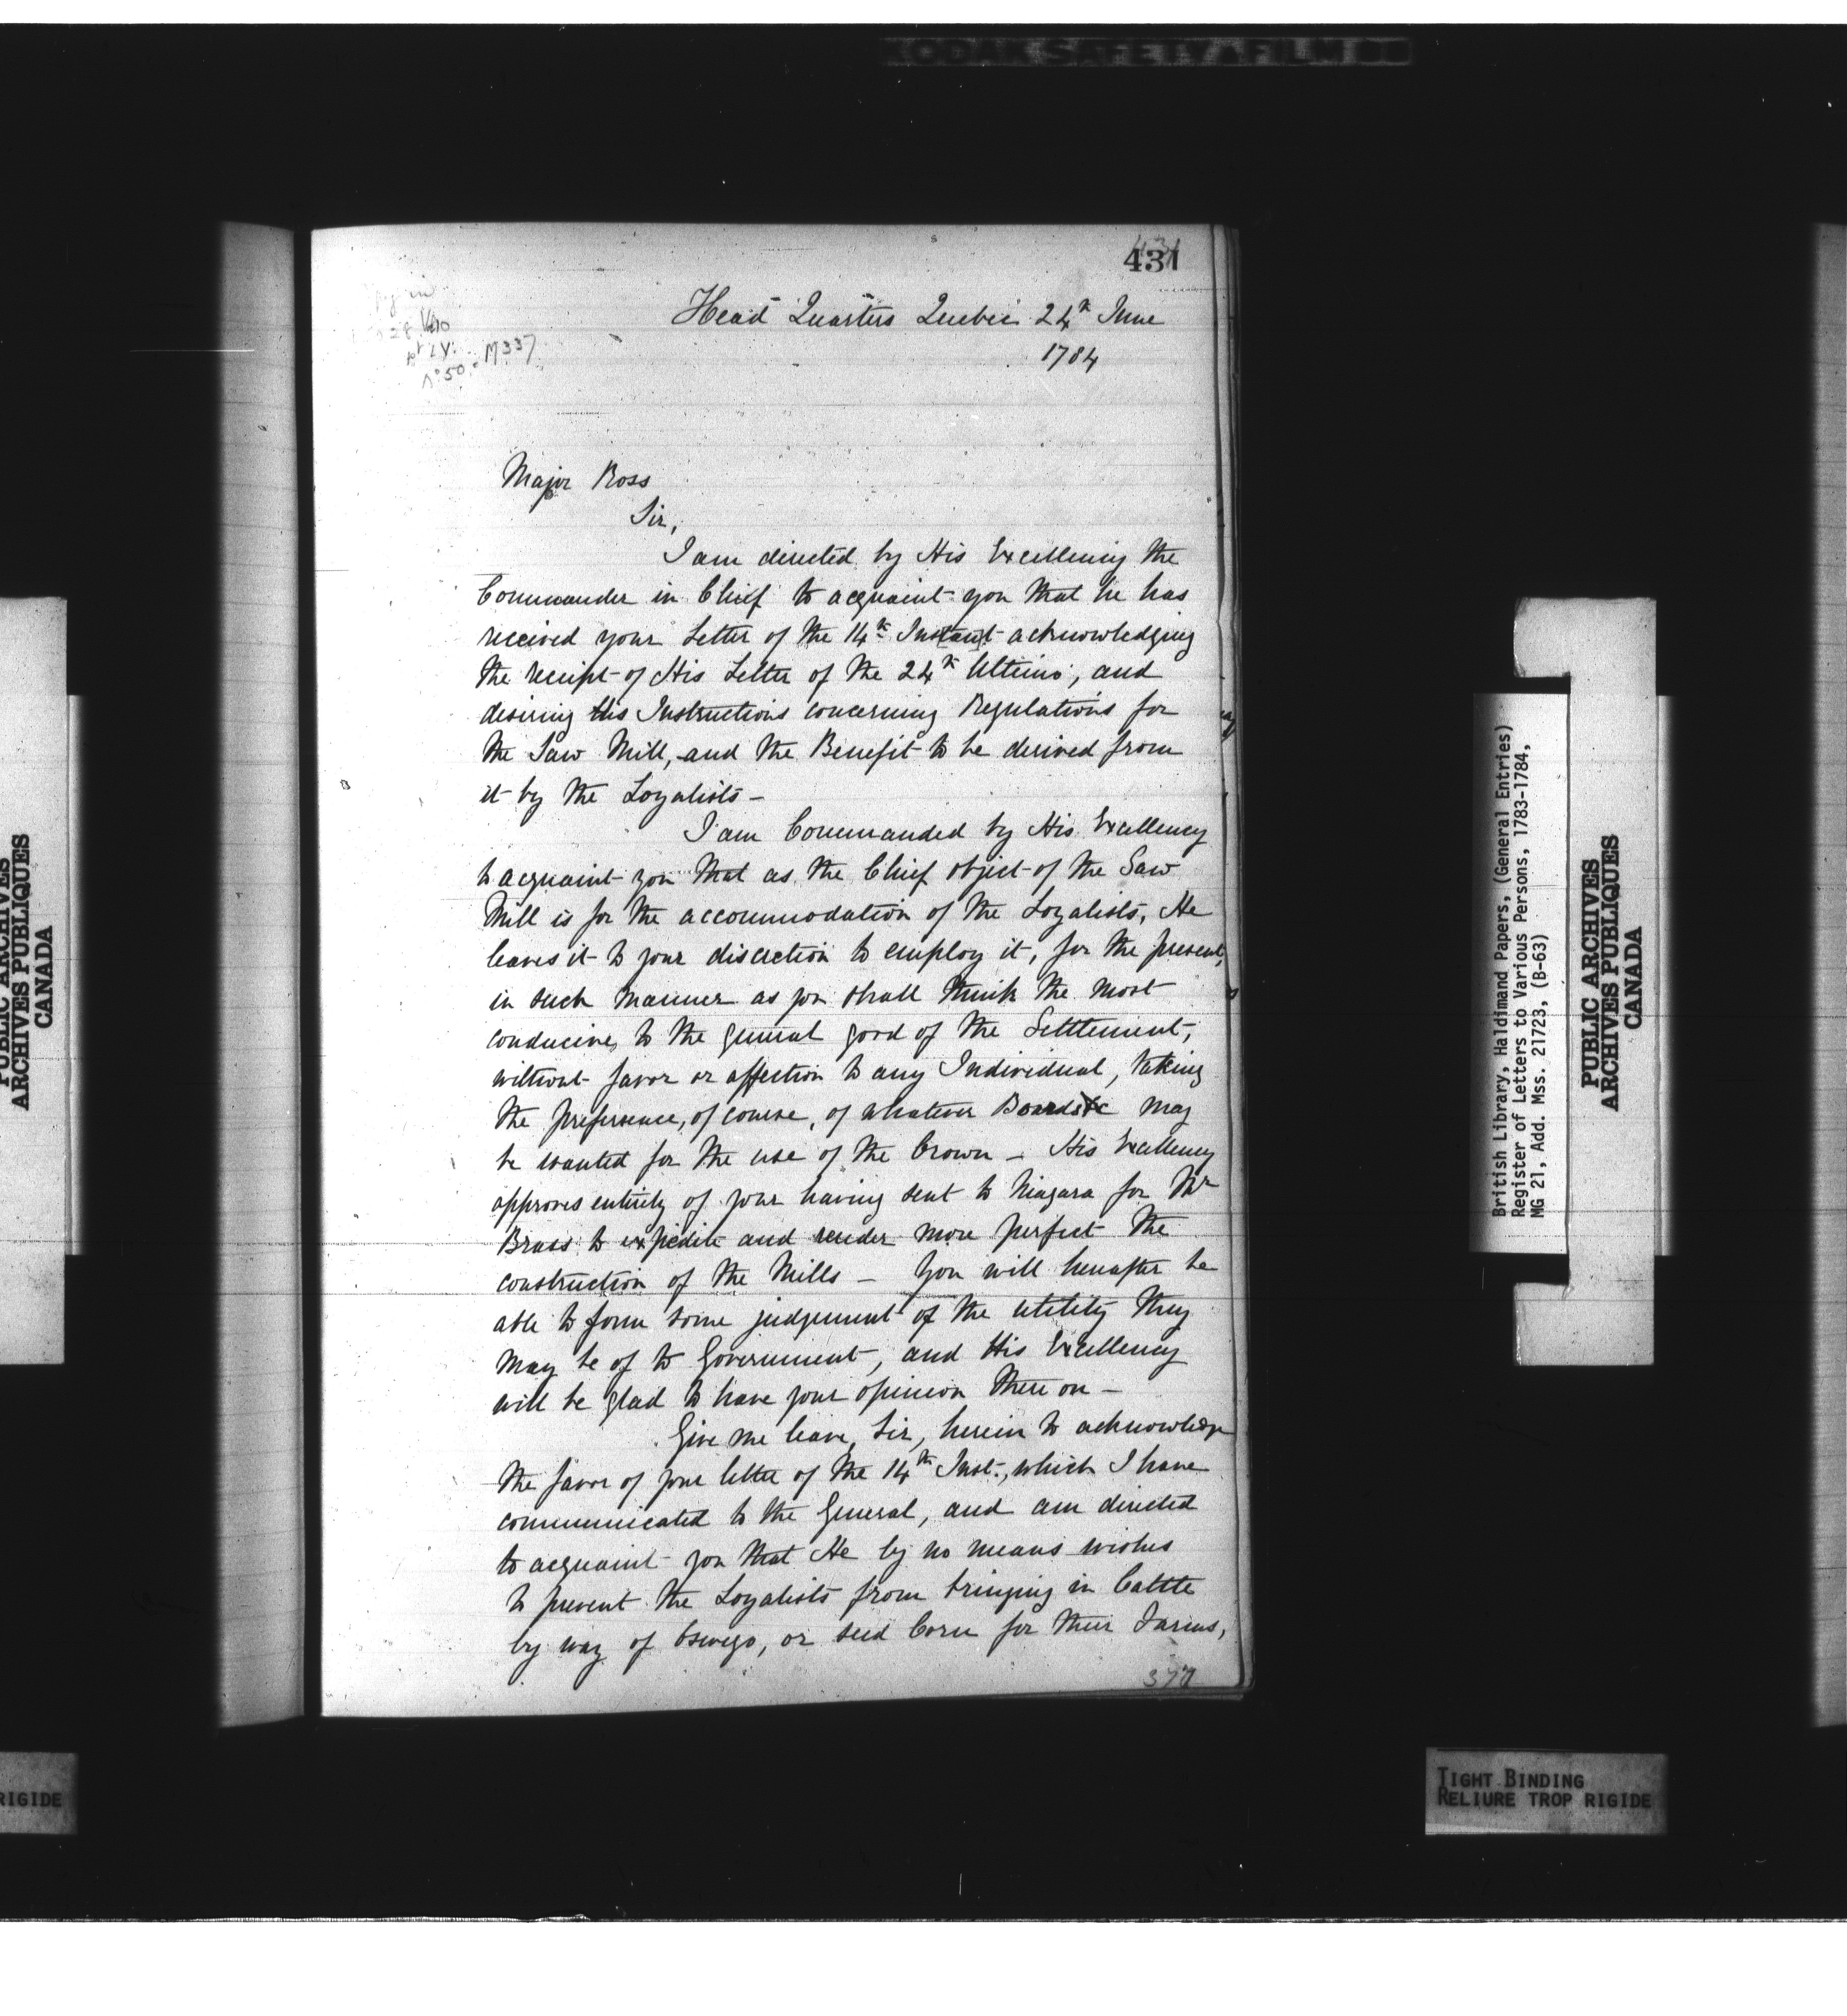 KODAK SAFETY FILM
431
Head Quarters Quebec 24th June
1784
No 50. M337
Major Ross
Sir,
I am directed by His Excellency the
Commander in Chief to acquaint you that he has
received your Letter of the 14th Instant acknowledging
the receipt of His Letter of the 24th Ultimo, and
desiring His Instructions concerning Regulations for
the Saw Mill, and the Benefit to be derived from
it by the Loyalists –
I am Commanded by His Excellency
to acquaint you that as the Chief object of the Saw
Mill is for the accommodation of the Loyalists, He
leaves it to your discretion to employ it, for the present,
in such manner as you shall think the most
conducive to the general good of the Settlement,
without favor or affection to any Individual, taking
the preference, of course, of whatever Boards &c may
be wanted for the use of the Crown – His Excellency
approves entirely of your having sent to Niagara for Mr
Brass to expedite and render more perfect the
construction of the Mills – You will hereafter be
able to form some judgement of the utility they
may be of to Government, and His Excellency
will be glad to have your opinion there on –
Give me leave, Sir, herein to acknowledge
the favor of your letter of the 14th Inst., which I have
communicated to the General, and am directed
to acquaint you that He by no means wishes
to prevent the Loyalists from bringing in Cattle
by way of Oswego, or seed Corn for their Farms,
377
British Library, Haldimand Papers, (General Entries)
Register of Letters to Various Persons, 1783-1784,
MG 21, Add. Mss. 21723, (B-63)
PUBLIC ARCHIVES
ARCHIVES PUBLIQUES
CANADA
TIGHT BINDING
RELIURE TROP RIGIDE
PUBLIC ARCHIVES
ARCHIVES PUBLIQUES
CANADA
RIGIDE